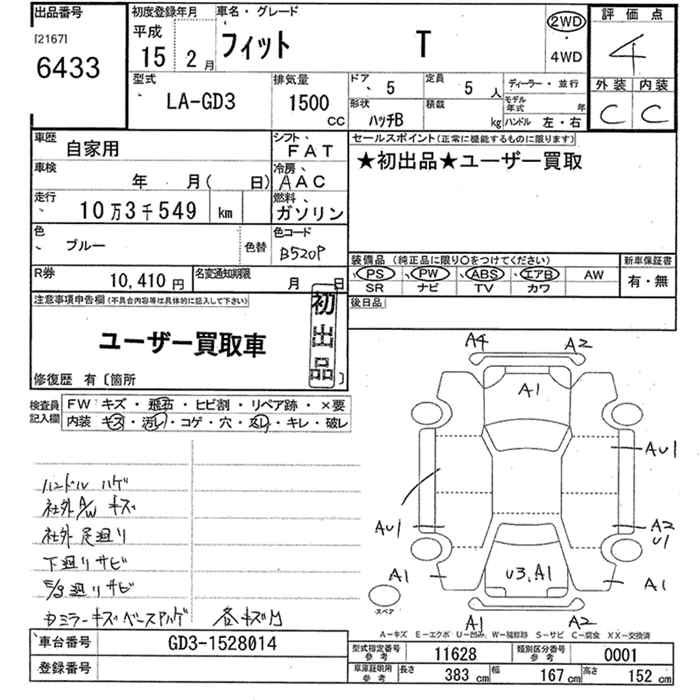 出品番号
[2167]
6433
初度登録年月
平成
15年 2月
車名・グレード
フィット T
2WD
・
4WD
評価点
4
外装 内装
C C
型式
LA-GD3
排気量
1500
CC
ドア、 5
定員 5人
ディーラー・並行
形状 ハッチB
積載 kg
モデル年式 年
ハンドル 左・右
車歴 自家用
シフト、 FAT
車検 年 月( 日)
冷房、 AAC
走行、 10万3千549 km
燃料、 ガソリン
色、 ブルー
色替
色コード B520P
R券 10,410円
名変通知期限 月 日
セールスポイント(正常に機能するものに限ります)
★初出品★ユーザー買取
装備品 (純正品に限り○をつけてください)
、PS 、PW 、ABS 、エアB AW
SR ナビ TV カワ
新車保証書
有・無
後日品
注意事項申告欄(不具合内容等は具体的に記入して下さい)
初出品
ユーザー買取車
修復歴 有〔箇所 〕
検査員記入欄
FW キズ・飛石・ヒビ割・リペア跡・×要
内装 キズ・汚レ・コゲ・穴・スレ・キレ・破レ
ハンドル ハゲ
社外A/W キズ
社外足廻り
下廻りサビ
E/g廻りサビ
各キズ凹
A4 A2
A1
AU1
AU1
A2
U1
A1 U3,A1 A1
スペア
A1 A2
A-キズ E-エクボ U-凹み W-補修跡 S-サビ C-腐食 XX-交換済
車台番号 GD3-1528014
登録番号
型式指定番号 参考 11628
類別区分番号 参考 0001
車庫証明用 参考 長さ 383cm 幅 167cm 高さ 152cm